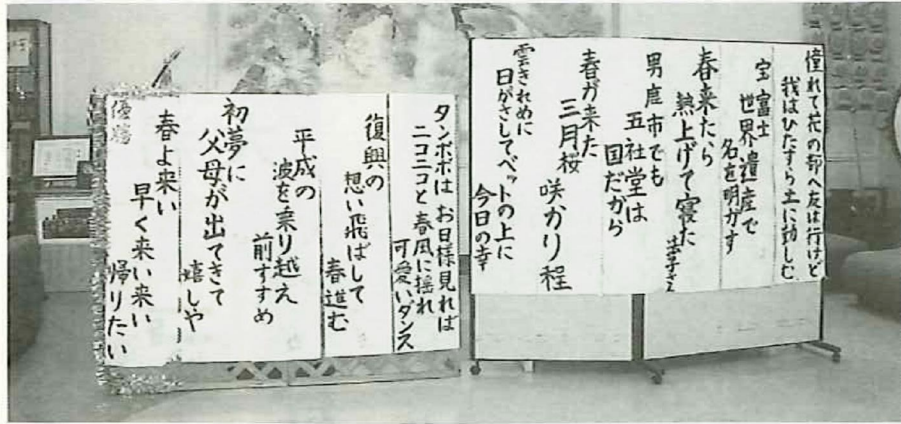 憧れて花の都へ友は行けど
我はひたすら土に勤しむ
宝富士
世界遺産で
名を明かす
春来たら
熱上げて寝た
男鹿市でも
五社堂は
国だから
春が来た
三月桜
咲かり程
雲きれめに
日がさしてベットの上に
今日の幸
タンポポは お日様見れば
ニコニコと春風に揺れ
可愛いダンス
復興の
想い飛ばして
春進む
平成の
波を乗り越え
前すすめ
初夢に
父母が出てきて
嬉しや
春よ来い
早く来い来い
帰りたい
優勝